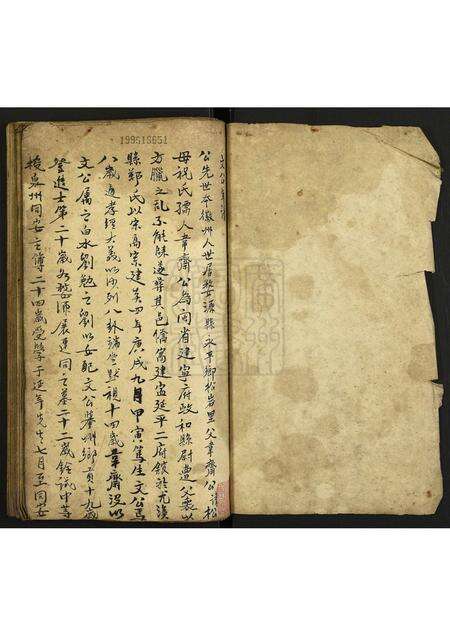 文公年譜
公先世本徽州人世居婺源縣永平鄉松岩里父韋齋公諱松
母祝氏孺人韋齋公為閩省建寧府政和縣尉遭父喪以
方臘之亂不能歸遂葬其邑僑寓建延平二府館於尤溪
縣鄭氏以宋高宗建炎四年庚戌九月甲寅篤生文公
八歲通孝經大義以沙列八卦端坐默視十四歲韋齋沒以
文公屬之白水劉勉之劉以女配文公肇州鄉貢十九歲
登進士第二十歲如婺源展連同之墓二十二歲銓試中等
授泉州同安主簿二十四歲受學于延年先生七月至同安
199515651